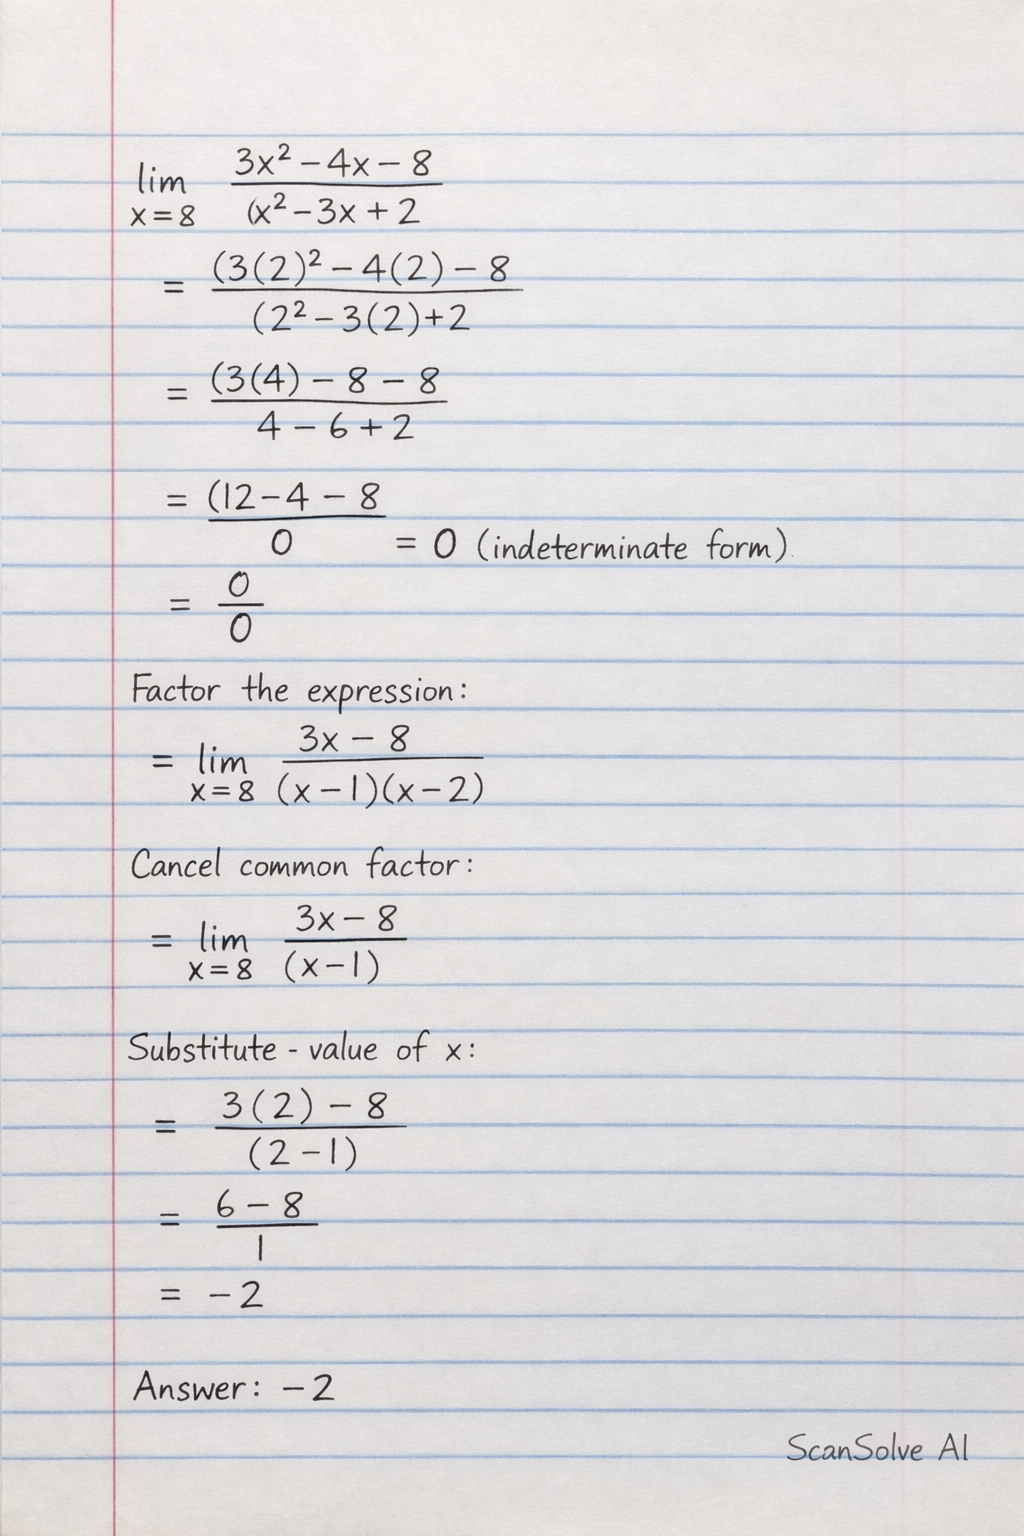 lim 3x² − 4x − 8
x = 8 (x² − 3x + 2
= (3(2)² − 4(2) − 8
(2² − 3(2) + 2
= (3(4) − 8 − 8
4 − 6 + 2
= (12 − 4 − 8
0 = 0 (indeterminate form).
= 0
0
Factor the expression:
= lim 3x − 8
x = 8 (x − 1)(x − 2)
Cancel common factor:
= lim 3x − 8
x = 8 (x − 1)
Substitute - value of x:
= 3(2) − 8
(2 − 1)
= 6 − 8
1
= −2
Answer: −2
ScanSolve AI